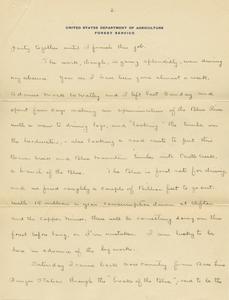 2.
UNITED STATES DEPARTMENT OF AGRICULTURE
FOREST SERVICE
party together until I finish this job.
The work, though, is going splendidly, even during
my absence. You see I have been gone almost a week.
and I left last Sunday and
spent four days making an examination of the Blue River
with a view to driving logs, and "looking" the timber on
the headwaters, - also looking a road route to put this
and Blue Mountain timber into Castle Creek,
a branch of the Blue. The Blue is great not for driving,
and we found roughly a couple of billion feet to go out.
With 10 million a year consumption alone at Clifton
and the Copper Mines, there will be something doing on this
forest before long, or I'm mistaken. I am lucky to be
here in advance of the big works.
Saturday I came back
Ranger Station through the "breaks of the Blue", and to be the